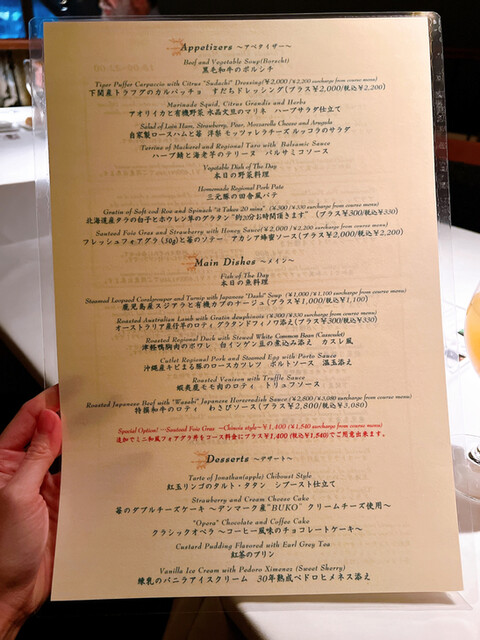 Appetizers ～アペタイザー～
Beef and Vegetable Soup(Borscht)
黒毛和牛のボルシチ
Tiger Puffer Carpaccio with Citrus "Sudachi" Dressing(¥2,000/¥2,200 surcharge from course menu)
下関産トラフグのカルパッチョ すだちドレッシング(プラス¥2,000/税込¥2,200)
Marinade Squid, Citrus Grandis and Herbs
アオリイカと有機野菜 水晶文旦のマリネ ハーブサラダ仕立て
Salad of Loin Ham, Strawberry, Pear, Mozzarella Cheese and Arugula
自家製ロースハムと苺 洋梨 モッツァレラチーズ ルッコラのサラダ
Terrine of Mackerel and Regional Taro with Balsamic Sauce
ハーブ鯖と海老芋のテリーヌ バルサミコソース
Vegetable Dish of The Day
本日の野菜料理
Homemade Regional Pork Pate
三元豚の田舎風パテ
Gratin of Soft cod Roe and Spinach "it Takes 20 mins" (¥300/¥330 surcharge from course menu)
北海道産タラの白子とホウレン草のグラタン "約20分お時間頂きます" (プラス¥300/税込¥330)
Sauteed Foie Gras and Strawberry with Honey Sauce(¥2,000/¥2,200 surcharge from course menu)
フレッシュフォアグラ(50g)と苺のソテー アカシア蜂蜜ソース(プラス¥2,000/税込¥2,200)
Main Dishes ～メイン～
Fish of The Day
本日の魚料理
Steamed Leopard Coralgrouper and Turnip with Japanese "Dashi" Soup (¥1,000/¥1,100 surcharge from course menu)
鹿児島産スジアラと有機カブのナージュ(プラス¥1,000/税込¥1,100)
Roasted Australian Lamb with Gratin dauphinois (¥300/¥330 surcharge from course menu)
オーストラリア産仔羊のロティ グラタンドフィノワ添え(プラス¥300/税込¥330)
Roasted Regional Duck with Stewed White Common Bean (Cassoulet)
津軽鴨胸肉のポワレ 白インゲン豆の煮込み添え カスレ風
Cutlet Regional Pork and Steamed Egg with Porto Sauce
沖縄産キビまる豚のロースカツレツ ポルトソース 温玉添え
Roasted Venison with Truffle Sauce
蝦夷鹿モモ肉のロティ トリュフソース
Roasted Japanese Beef with "Wasabi" Japanese Horseradish Sauce (¥2,800/¥3,080 surcharge from course menu)
特撰和牛のロティ わさびソース(プラス¥2,800/税込¥3,080)
Special Option! ～Sauteed Foie Gras ～Chinois style～¥1,400 (¥1,540 surcharge from course menu)
追加でミニ和風フォアグラ丼をコース料金にプラス¥1,400(税込¥1,540)でご用意出来ます。
Desserts ～デザート～
Tarte of Jonathan(apple) Chiboust Style
紅玉リンゴのタルト・タタン シブースト仕立て
Strawberry and Cream Cheese Cake
苺のダブルチーズケーキ ～デンマーク産"BUKO" クリームチーズ使用～
"Opera" Chocolate and Coffee Cake
クラシックオペラ ～コーヒー風味のチョコレートケーキ～
Custard Pudding Flavored with Earl Grey Tea
紅茶のプリン
Vanilla Ice Cream with Pedoro Ximenez (Sweet Sherry)
練乳のバニラアイスクリーム 30年熟成ペドロヒメネス添え